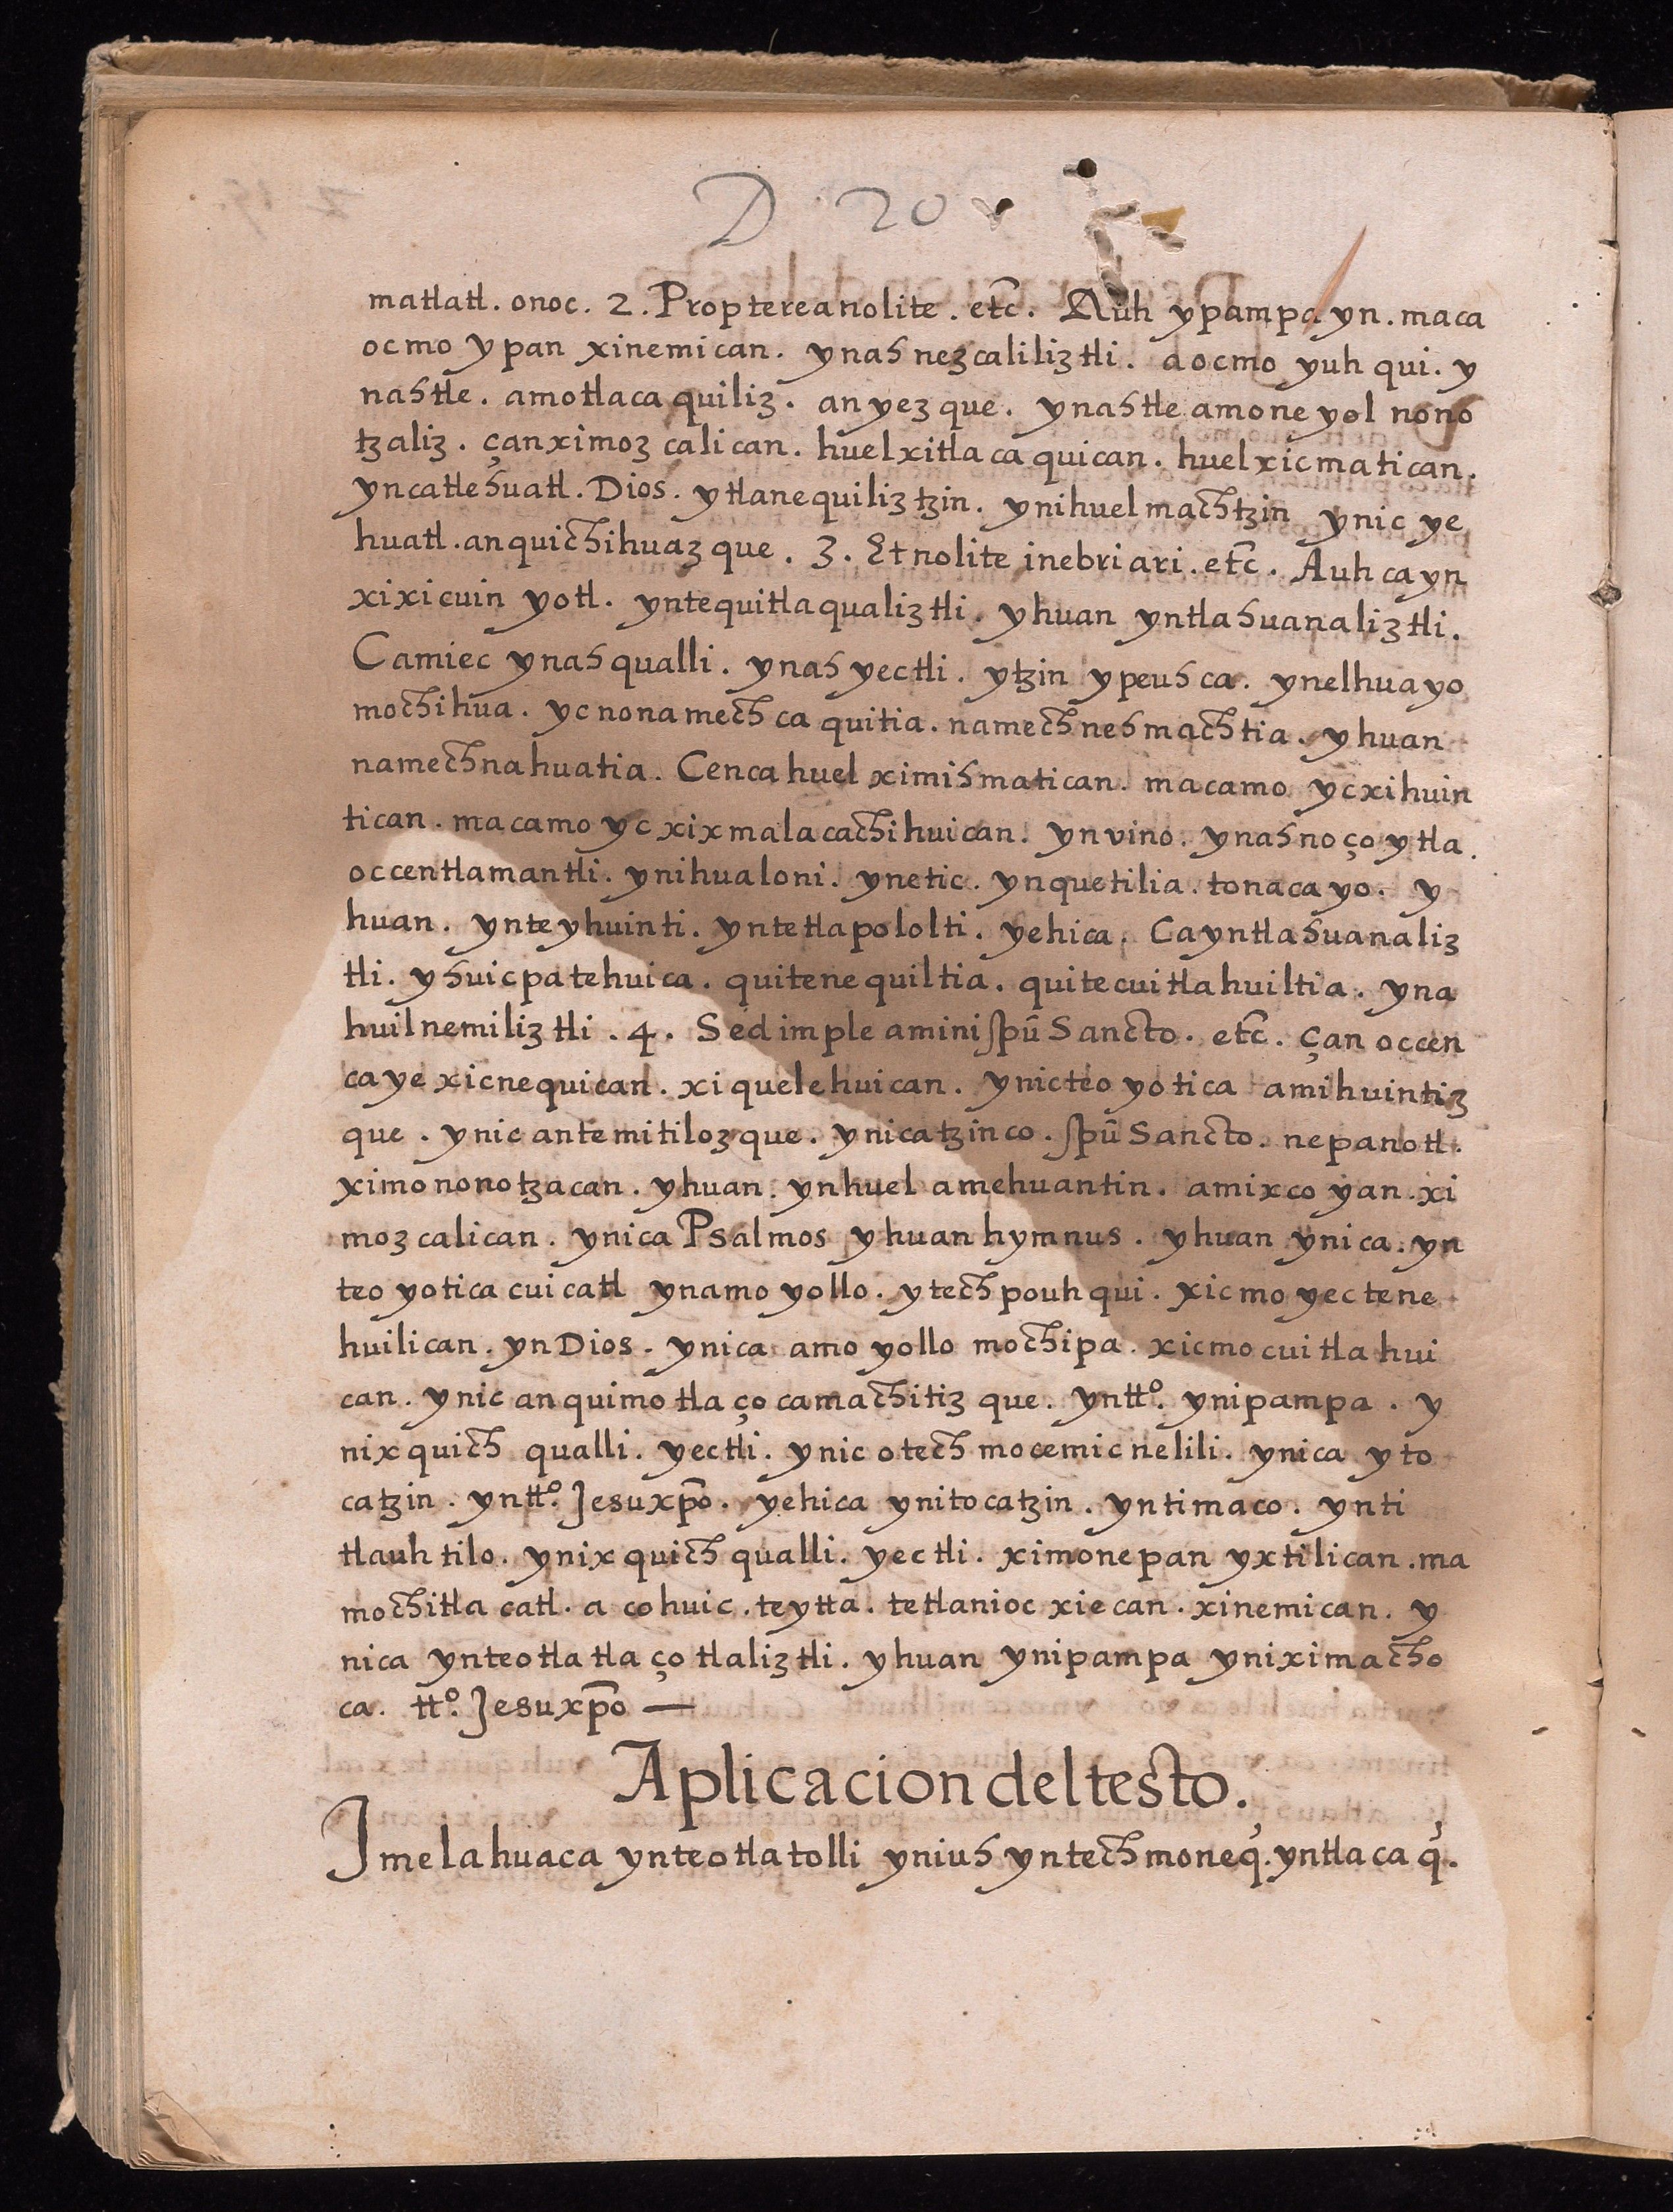 D. 20
matlatl. onoc. 2. Propterea nolite. etc̄. Auh ypampa yn. maca
ocmo ypan xinemican. ynah nezcaliliztli. aocmo yuh qui. y
nahtle. amotlacaquiliz. anyezque. ynahtle amoneyol nono
tzaliz. çanximozcalican. huelxitlacaquican. huelxicmatican.
yncatlehuatl. Dios. ytlanequiliztzin. ynihuelmachtzin ynic ye
huatl. anquichihuazque. 3. Et nolite inebriari. etc̄. Auh ca yn
xixicuin yotl. yntequitlaqualiztli. yhuan yntlahuanaliztli.
Camiec ynahqualli. ynahyectli. ytzin ypeuhca. ynelhuayo
mochihua. ycnonamechcaquitia. namechnehmachtia. yhuan
namechnahuatia. Cencahuel ximihmatican. macamo ycxihuin
tican. macamo yc xixmalacachihuican. yn vino. ynahnoço ytla
occentlamantli. ynihualoni. ynetic. ynquetilia. tonacayo. y
huan. ynteyhuinti. yntetlapololti. yehica. Ca yntlahuanaliz
tli. yhuicpatehuica. quitenequiltia. quitecuitlahuiltia. yna
huilnemiliztli. 4. Sed imple amini spū Sancto. etc̄. çan occen
caye xicnequican. xiquelehuican. ynicteoyotica amihuintiz
que. ynic antemitilozque. ynicatzinco. spū Sancto. nepanotl.
ximononotzacan. yhuan. ynhuel amehuantin. amixcoyan. xi
mozcalican. ynica Psalmos yhuan hymnus. yhuan ynica. yn
teoyotica cuicatl ynamoyollo. ytechpouhqui. xicmoyectene
huilican. yn Dios. ynica amoyollo mochipa. xicmocuitlahui
can. ynic anquimotlaçocamachitizque. yntt.º ynipampa. y
nixquich qualli. yectli. ynic otechmocemicnelili. ynica yto
catzin. yntt.º Jesuxp̄o. yehica ynitocatzin. yntimaco. ynti
tlauhtilo. ynixquich qualli. yectli. ximonepanyxtilican. ma
mochitlacatl. acohuic. teytta. tetlanioc xiecan. xinemican. y
nica ynteotlatlaçotlaliztli. yhuan ynipampa yniximacho
ca. tt.º Jesuxp̄o —
Aplicacion del testo.
Jmelahuaca ynteotlatolli yniuh yntechmoneq̓. yntlacaq̓.